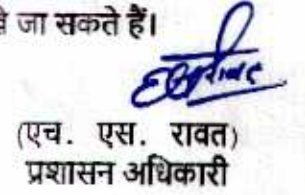 जा सकते हैं।
(एच. एस. रावत)
प्रशासन अधिकारी